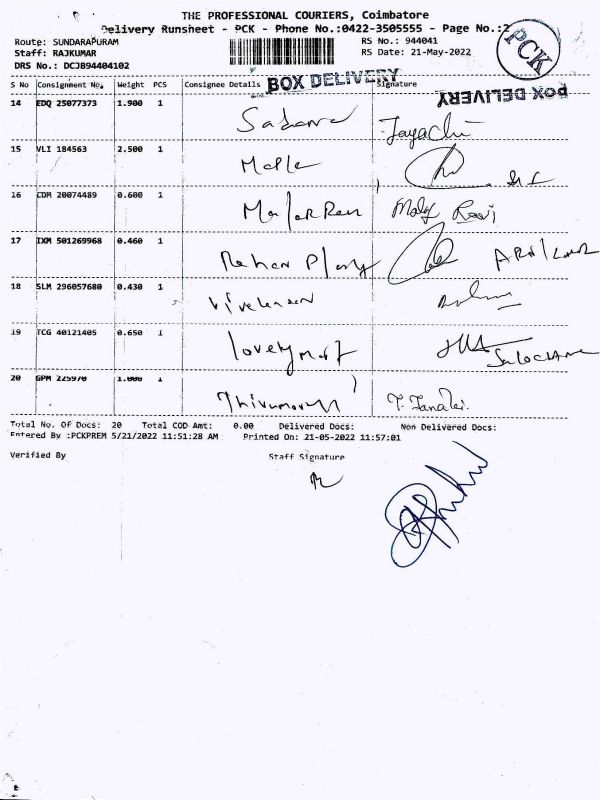 THE PROFESSIONAL COURIERS, Coimbatore
Delivery Runsheet - PCK - Phone No.:0422-3505555 - Page No.:2
Route: SUNDARAPURAM RS No.: 944041
Staff: RAJKUMAR RS Date: 21-May-2022
DRS No.: DCJB94404102
PCK
BOX DELIVERY
BOX DELIVERY
S No Consignment No. Weight PCS Consignee Details Signature
14 EDQ 25077373 1.900 1 Jayachi
15 VLI 184563 2.500 1 Maple
16 CDM 20074489 0.600 1
17 IXM 501269968 0.460 1
18 SLM 296057680 0.430 1
19 TCG 40121405 0.650 1
20 GPM 225970 1.000 1
Total No. Of Docs: 20 Total COD Amt: 0.00 Delivered Docs: Non Delivered Docs:
Entered By :PCKPREM 5/21/2022 11:51:28 AM Printed On: 21-05-2022 11:57:01
Verified By Staff Signature